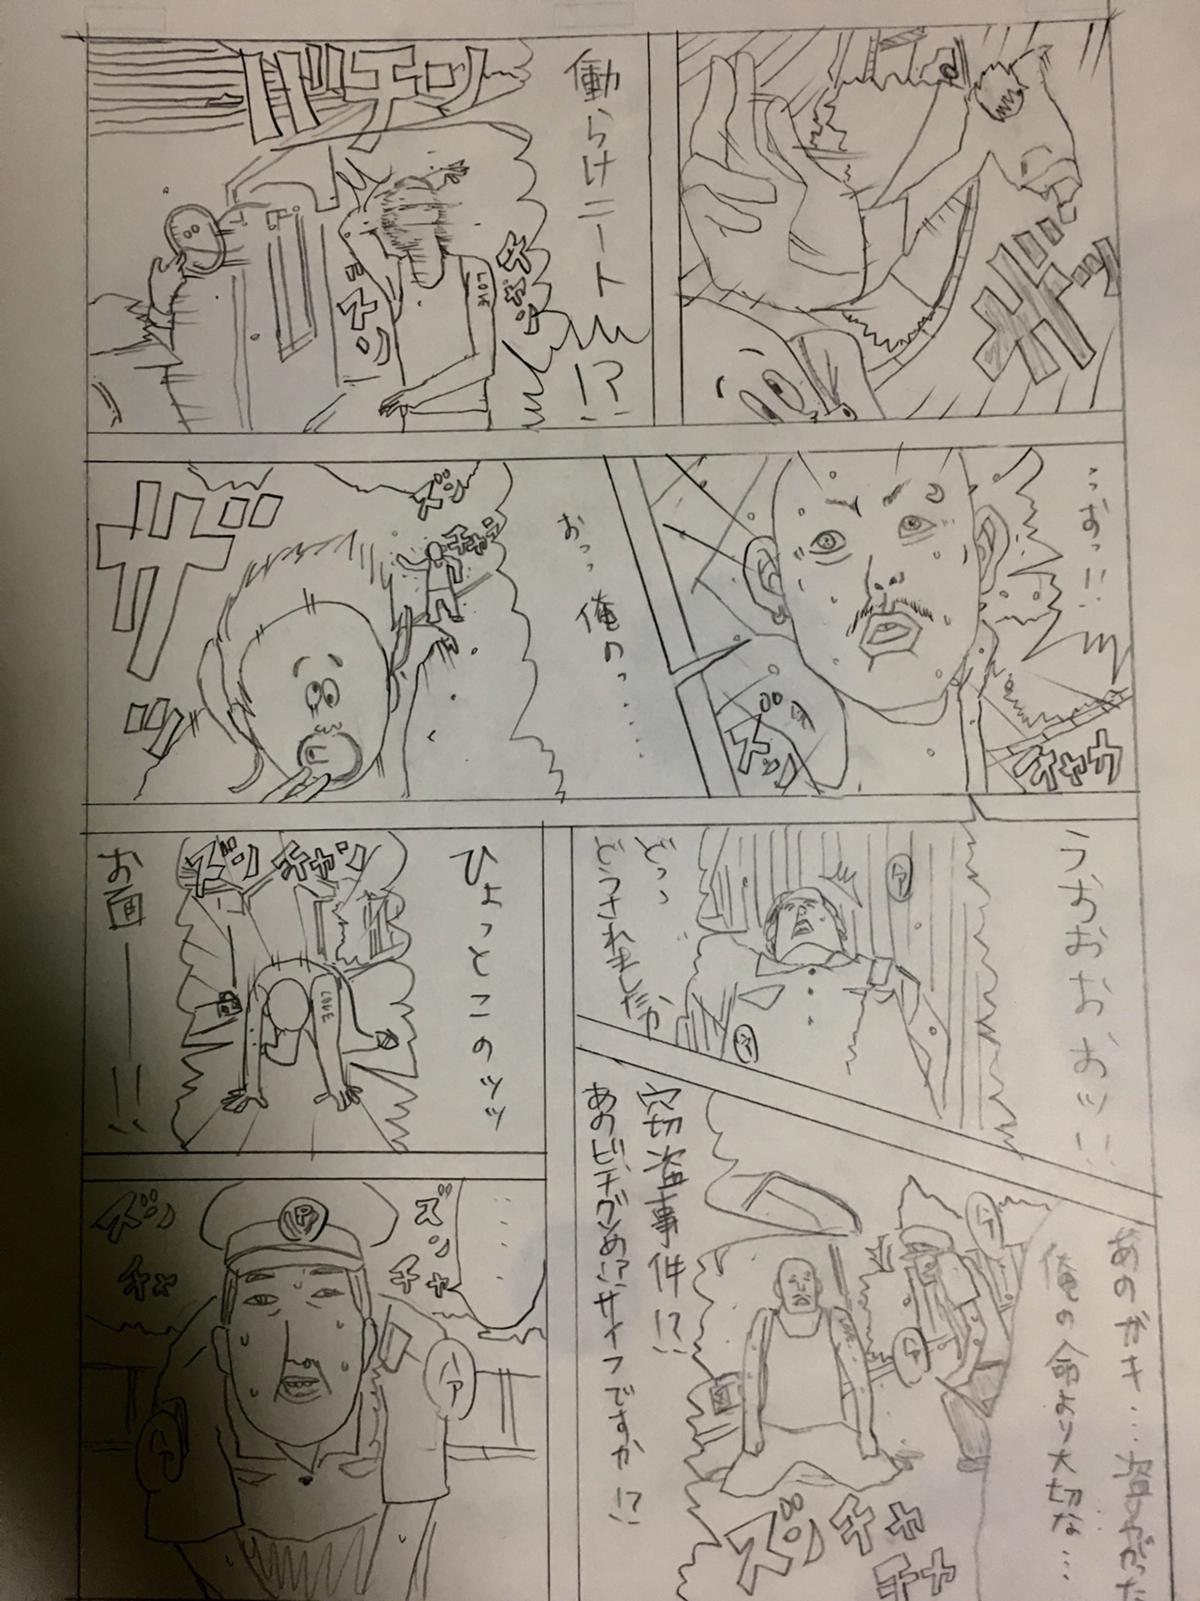 ガッ
働らけニート
!?
バチコン
ズン
チャン
LOVE
おっ!!
ズッ
チャカ
おっ俺のっ……
ズン
チャラ
ザロロ
うおおおおッ!!
どっっ
どうされましたか
ア
ア
ひょっとこのッッ
お面――!!
ズン
チャン
LOVE
あのガキ…盗みやがった
俺の命より大切な…
窃盗事件!?
あのビチグソめ!?サイフですか!?
ア
ア
ズンチャチャ
……
P
ズン
チャ
ズン
チャ
ハァ
ハァ